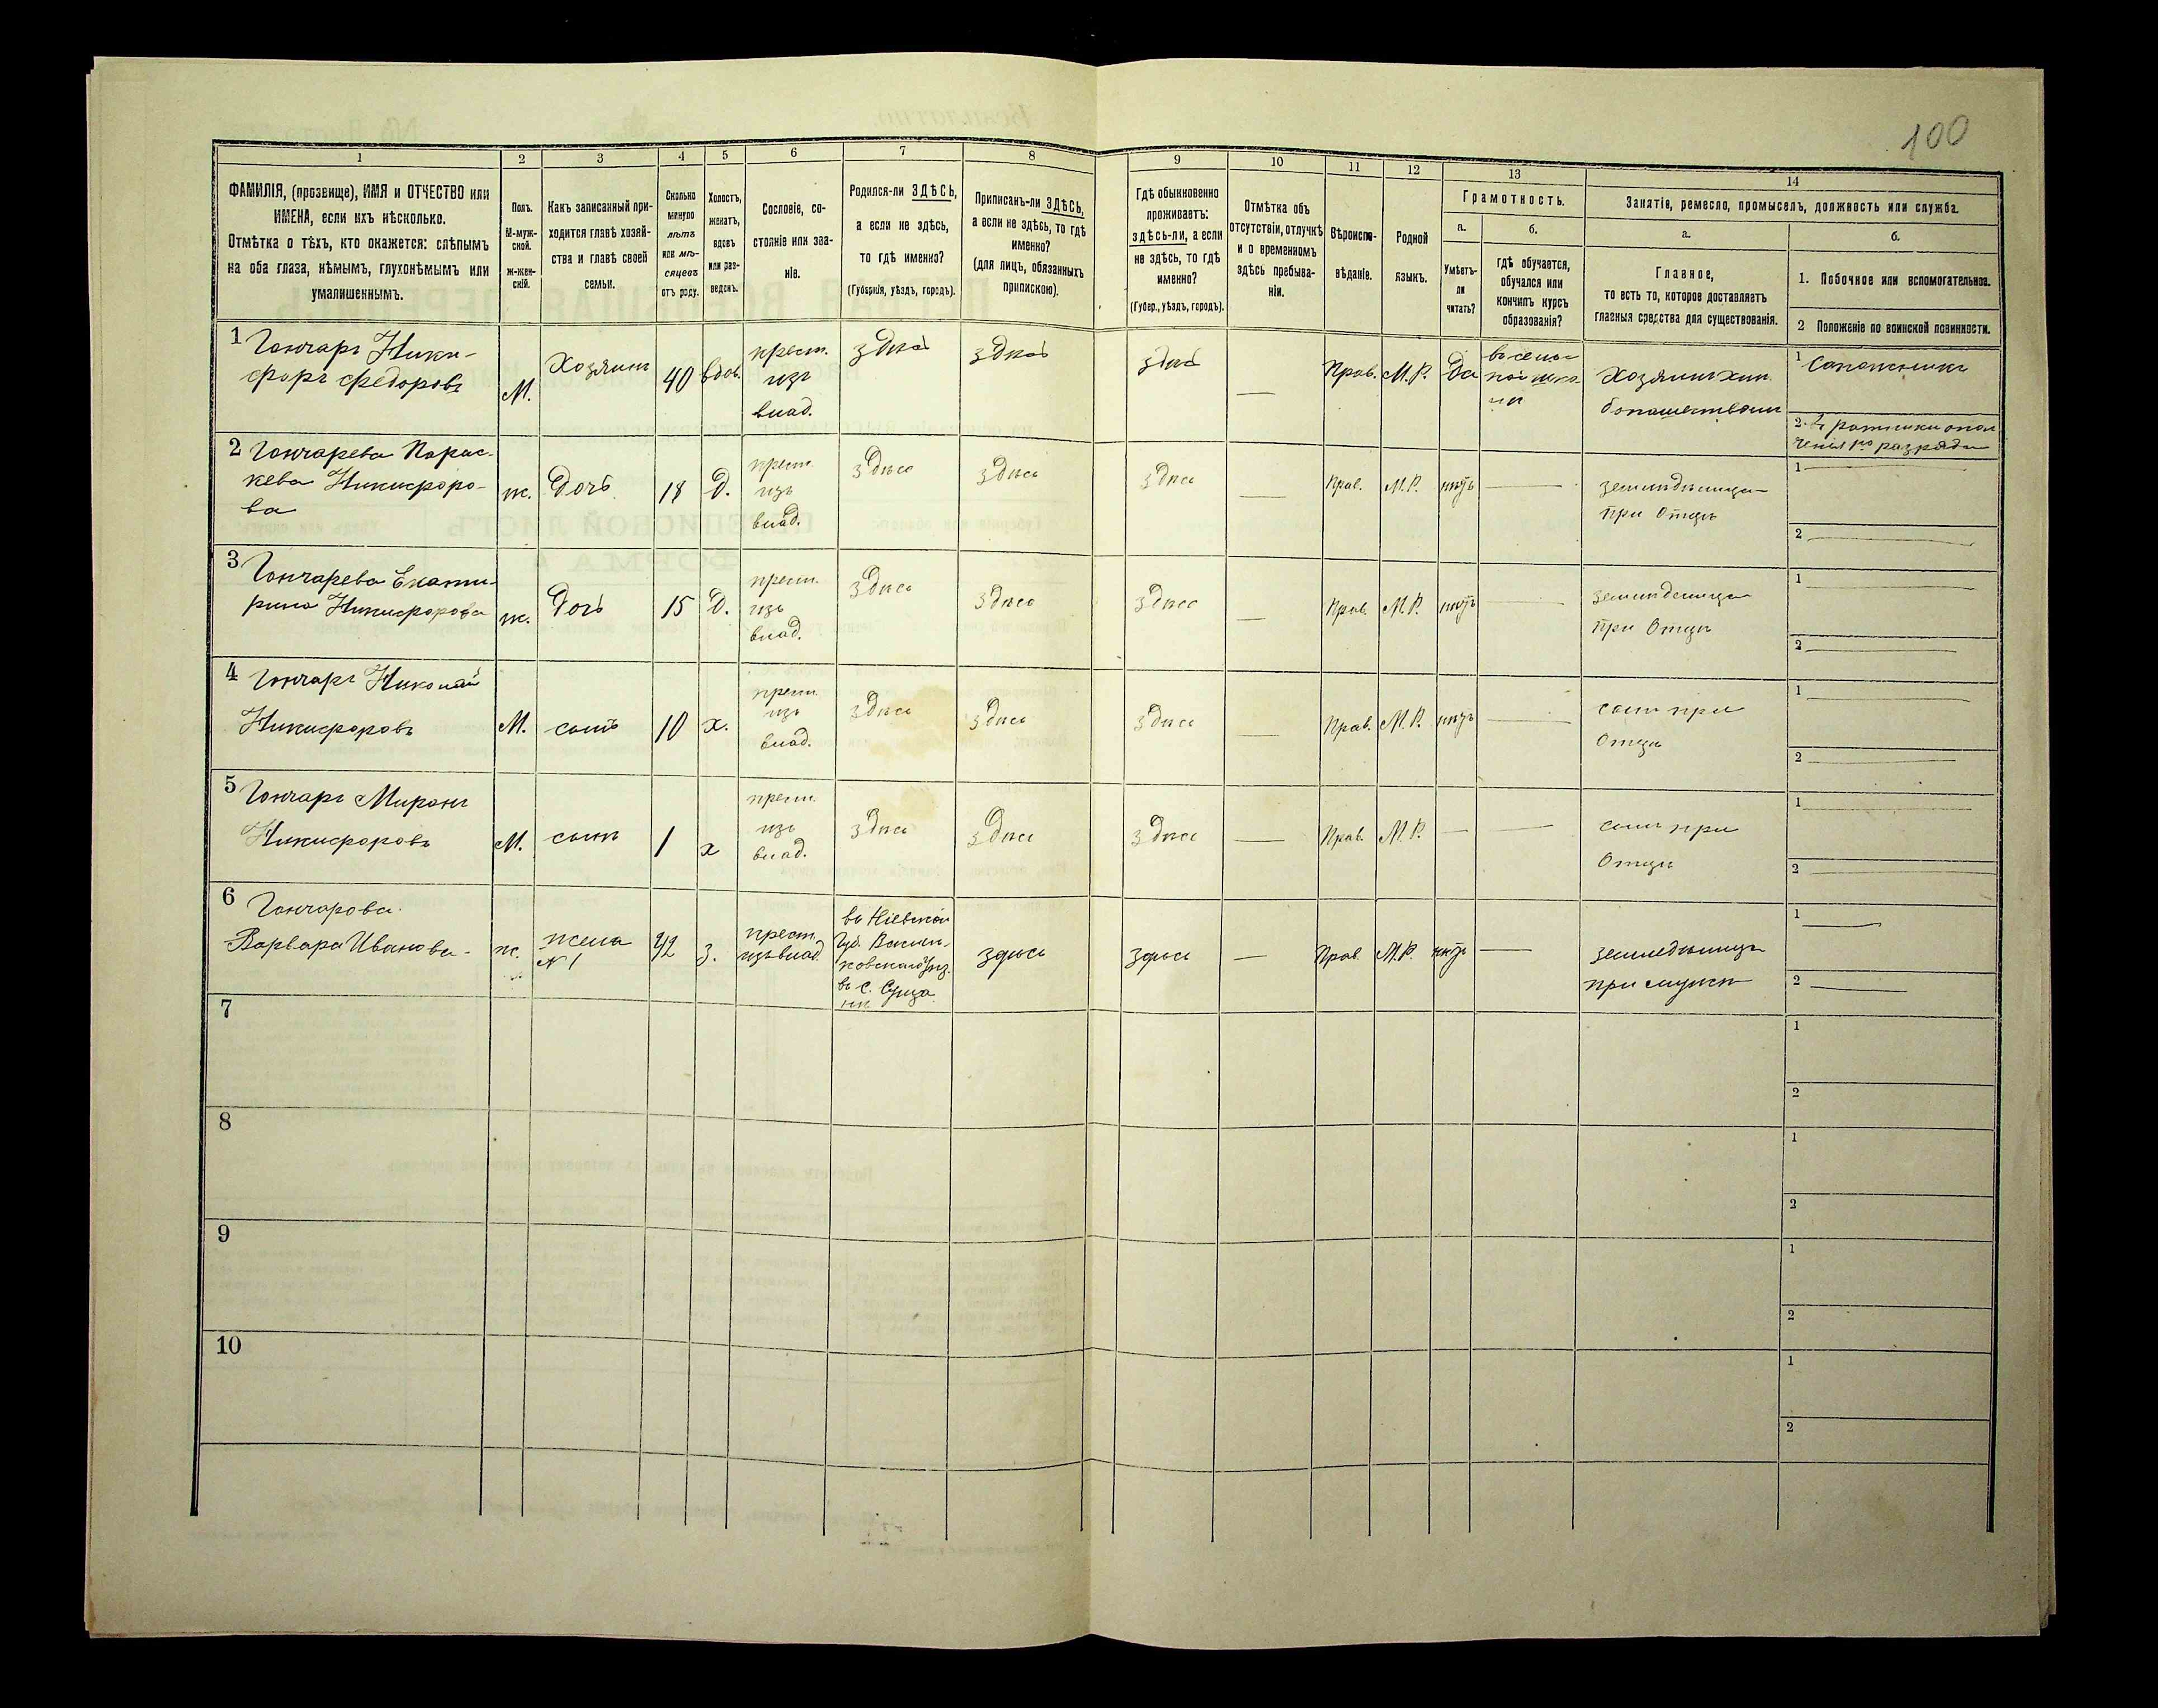 100
1 2 3 4 5 6 7 8 9 10 11 12 13 14
ФАМИЛІЯ, (прозвище), ИМЯ и ОТЧЕСТВО или
ИМЕНА, если ихъ нѣсколько.
Отмѣтка о тѣхъ, кто окажется: слѣпымъ
на оба глаза, нѣмымъ, глухонѣмымъ или
умалишеннымъ.
Полъ.
М-муж-
ской.
Ж-жен-
скій.
Какъ записанный при-
ходится главѣ хозяй-
ства и главѣ своей
семьи.
Сколько
минуло
лѣтъ
или мѣ-
сяцевъ
отъ роду.
Холостъ,
женатъ,
вдовъ
или раз-
веденъ.
Сословіе, со-
стояніе или зва-
ніе.
Родился-ли ЗДѢСЬ,
а если не здѣсь,
то гдѣ именно?
(Губернія, уѣздъ, городъ).
Приписанъ-ли ЗДѢСЬ,
а если не здѣсь, то гдѣ
именно?
(для лицъ, обязанныхъ
припискою).
Гдѣ обыкновенно
проживаетъ:
здѣсь-ли, а если
не здѣсь, то гдѣ
именно?
(Губер., уѣздъ, городъ).
Отмѣтка объ
отсутствіи, отлучкѣ
и о временномъ
здѣсь пребыва-
ніи.
Вѣроиспо-
вѣданіе.
Родной
языкъ.
Грамотность.
а.
Умѣетъ-
ли
читать?
б.
Гдѣ обучается,
обучался или
кончилъ курсъ
образованія?
Занятіе, ремесло, промыселъ, должность или служба.
а.
Главное,
то есть то, которое доставляетъ
главныя средства для существованія.
б.
1. Побочное или вспомогательное.
2 Положеніе по воинской повинности.
1 Гончаръ Ники-
форъ Федоровъ
М.
Хозяинъ
40
вдов.
крест.
изъ
влад.
здѣсь
здѣсь
здѣсь
—
Прав.
М.Р.
Да
въ сель-
ской шко-
лѣ
Хозяинъ хлѣ
бопашествомъ
1 Сапожникъ
2.
2 Гончарева Парас-
кева Никифоро-
ва
ж.
Дочь
18
Д.
крест.
изъ
влад.
здѣсь
здѣсь
здѣсь
—
Прав.
М.Р.
нѣтъ
—
земледѣлица
при Отцѣ
1 —
2 —
3 Гончарева Екате-
рина Никифорова
ж.
Дочь
15
Д.
крест.
изъ
влад.
здѣсь
здѣсь
здѣсь
—
Прав.
М.Р.
нѣтъ
—
земледѣлица
при Отцѣ
1 —
2 —
4 Гончаръ Николай
Никифоровъ
М.
сынъ
10
х.
крест.
изъ
влад.
здѣсь
здѣсь
здѣсь
—
Прав.
М.Р.
нѣтъ
—
сынъ при
Отцѣ
1 —
2 —
5 Гончаръ Миронъ
Никифоровъ
М.
сынъ
1
х
крест.
изъ
влад.
здѣсь
здѣсь
здѣсь
—
Прав.
М.Р.
—
—
сынъ при
Отцѣ
1 —
2 —
6 Гончарова
Варвара Иванова
ж.
жена
№ 1
42
З.
крест.
изъ влад.
въ Кіевской
Губ. Василь-
ковскаго Уѣз.
въ с.
здѣсь
здѣсь
—
Прав.
М.Р.
нѣтъ
—
земледѣлица
при мужѣ
1 —
2 —
7
1
2
8
1
2
9
1
2
10
1
2